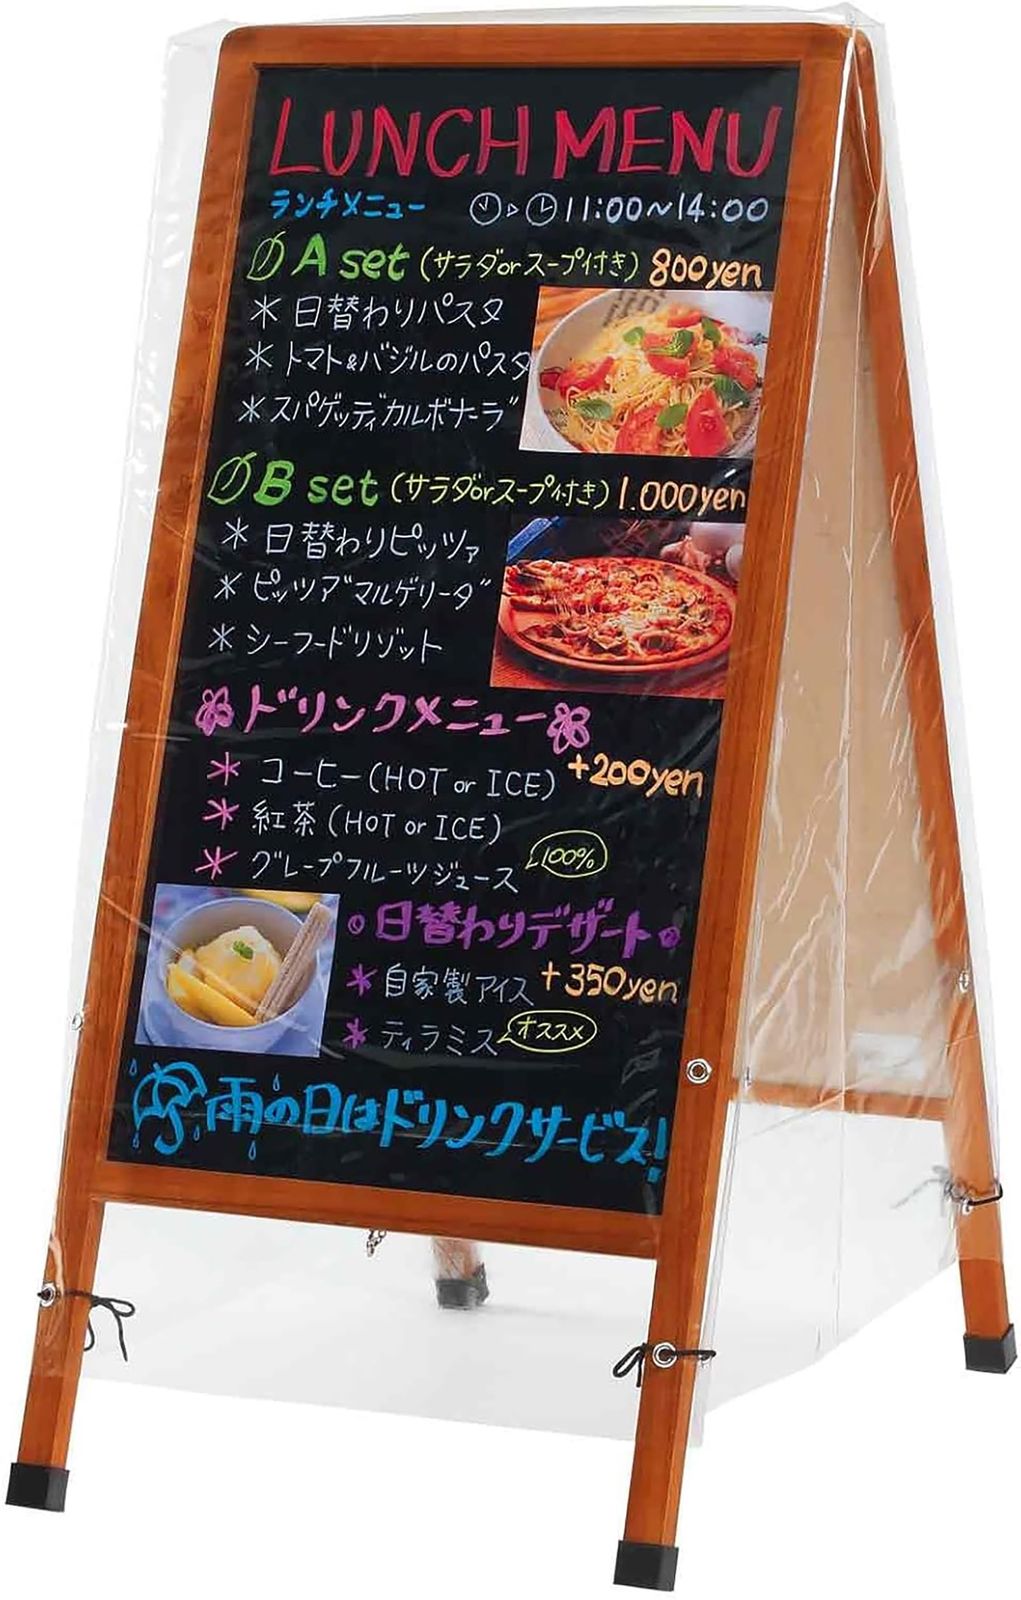 LUNCH MENU
ランチメニュー 11:00~14:00
A set (サラダorスープ付き) 800yen
* 日替わりパスタ
* トマト&バジルのパスタ
* スパゲッティカルボナーラ
B set (サラダorスープ付き) 1.000yen
* 日替わりピッツァ
* ピッツァマルゲリータ
* シーフードリゾット
ドリンクメニュー
+200yen
* コーヒー(HOT or ICE)
* 紅茶(HOT or ICE)
* グレープフルーツジュース 100%
日替わりデザート
* 自家製アイス +350yen
* ティラミス オススメ
雨の日はドリンクサービス!